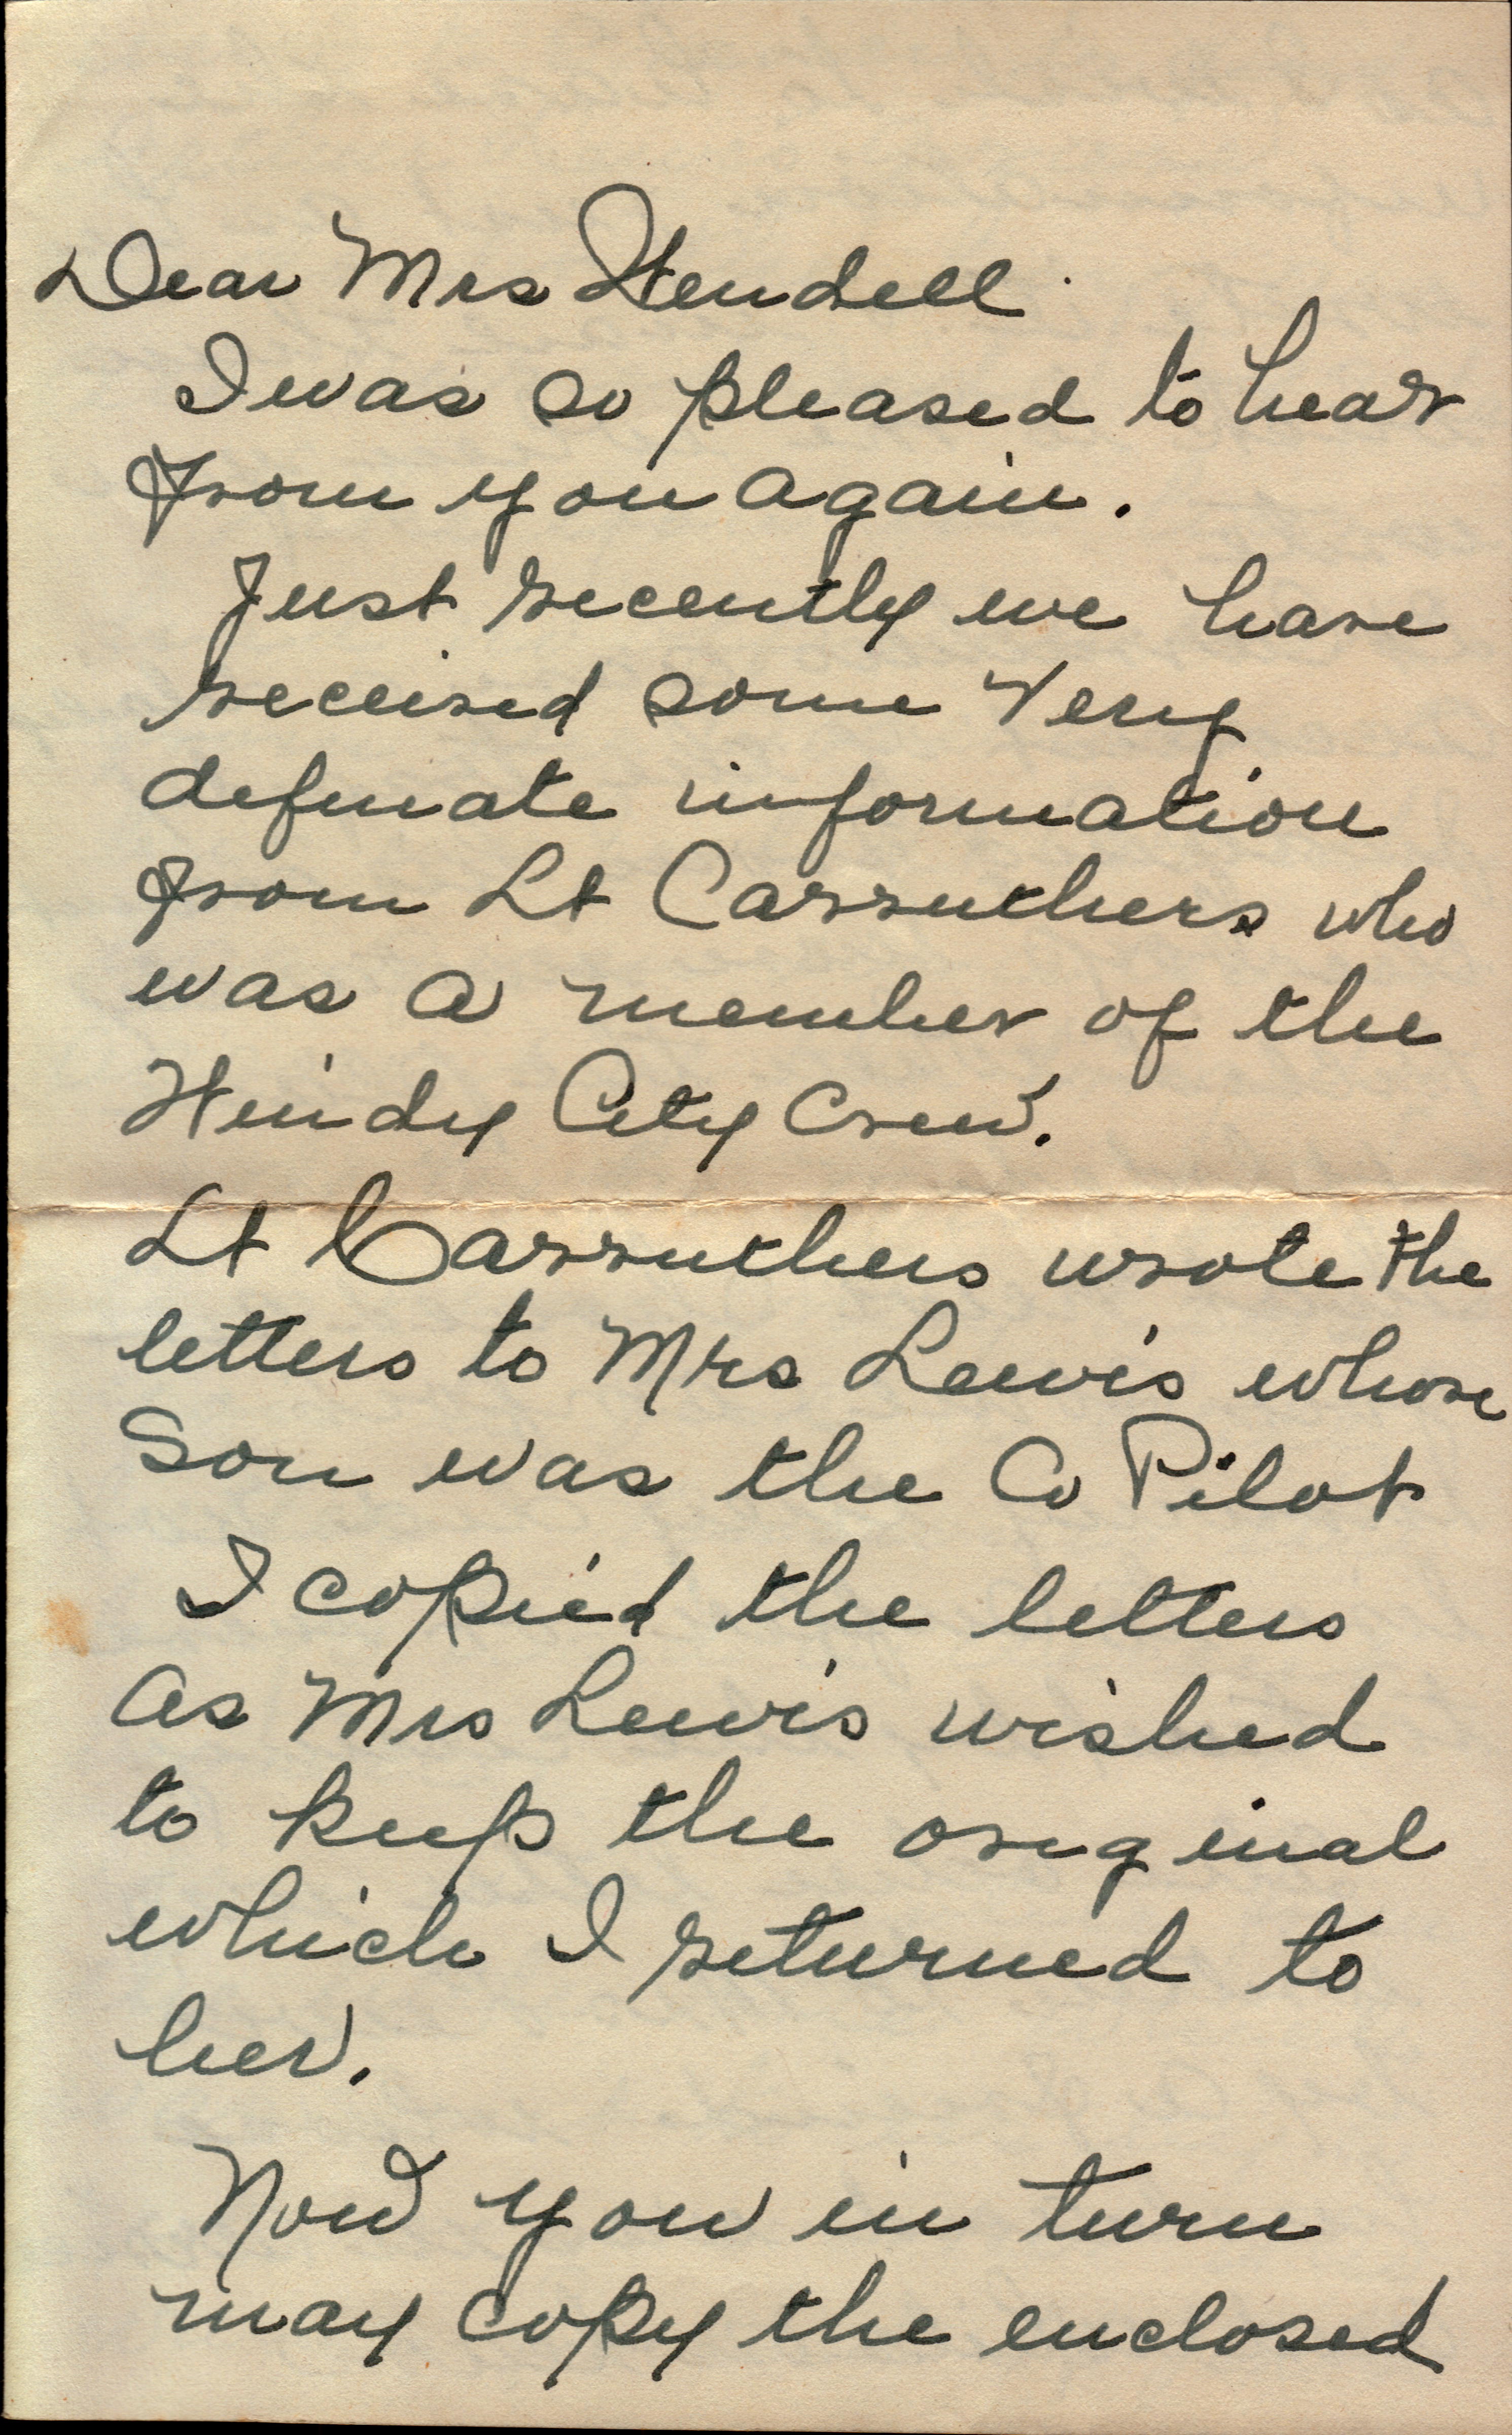 Dear Mrs Wendell
I was so pleased to hear
from you again.
Just recently we have
received some very
definate information
from Lt Carruthers who
was a member of the
Windy City Crew.
Lt Carruthers wrote the
letters to Mrs Lewis whose
son was the Co Pilot
I copied the letters
as Mrs Lewis wished
to keep the original
which I returned to
her.
Now you in turn
may copy the enclosed